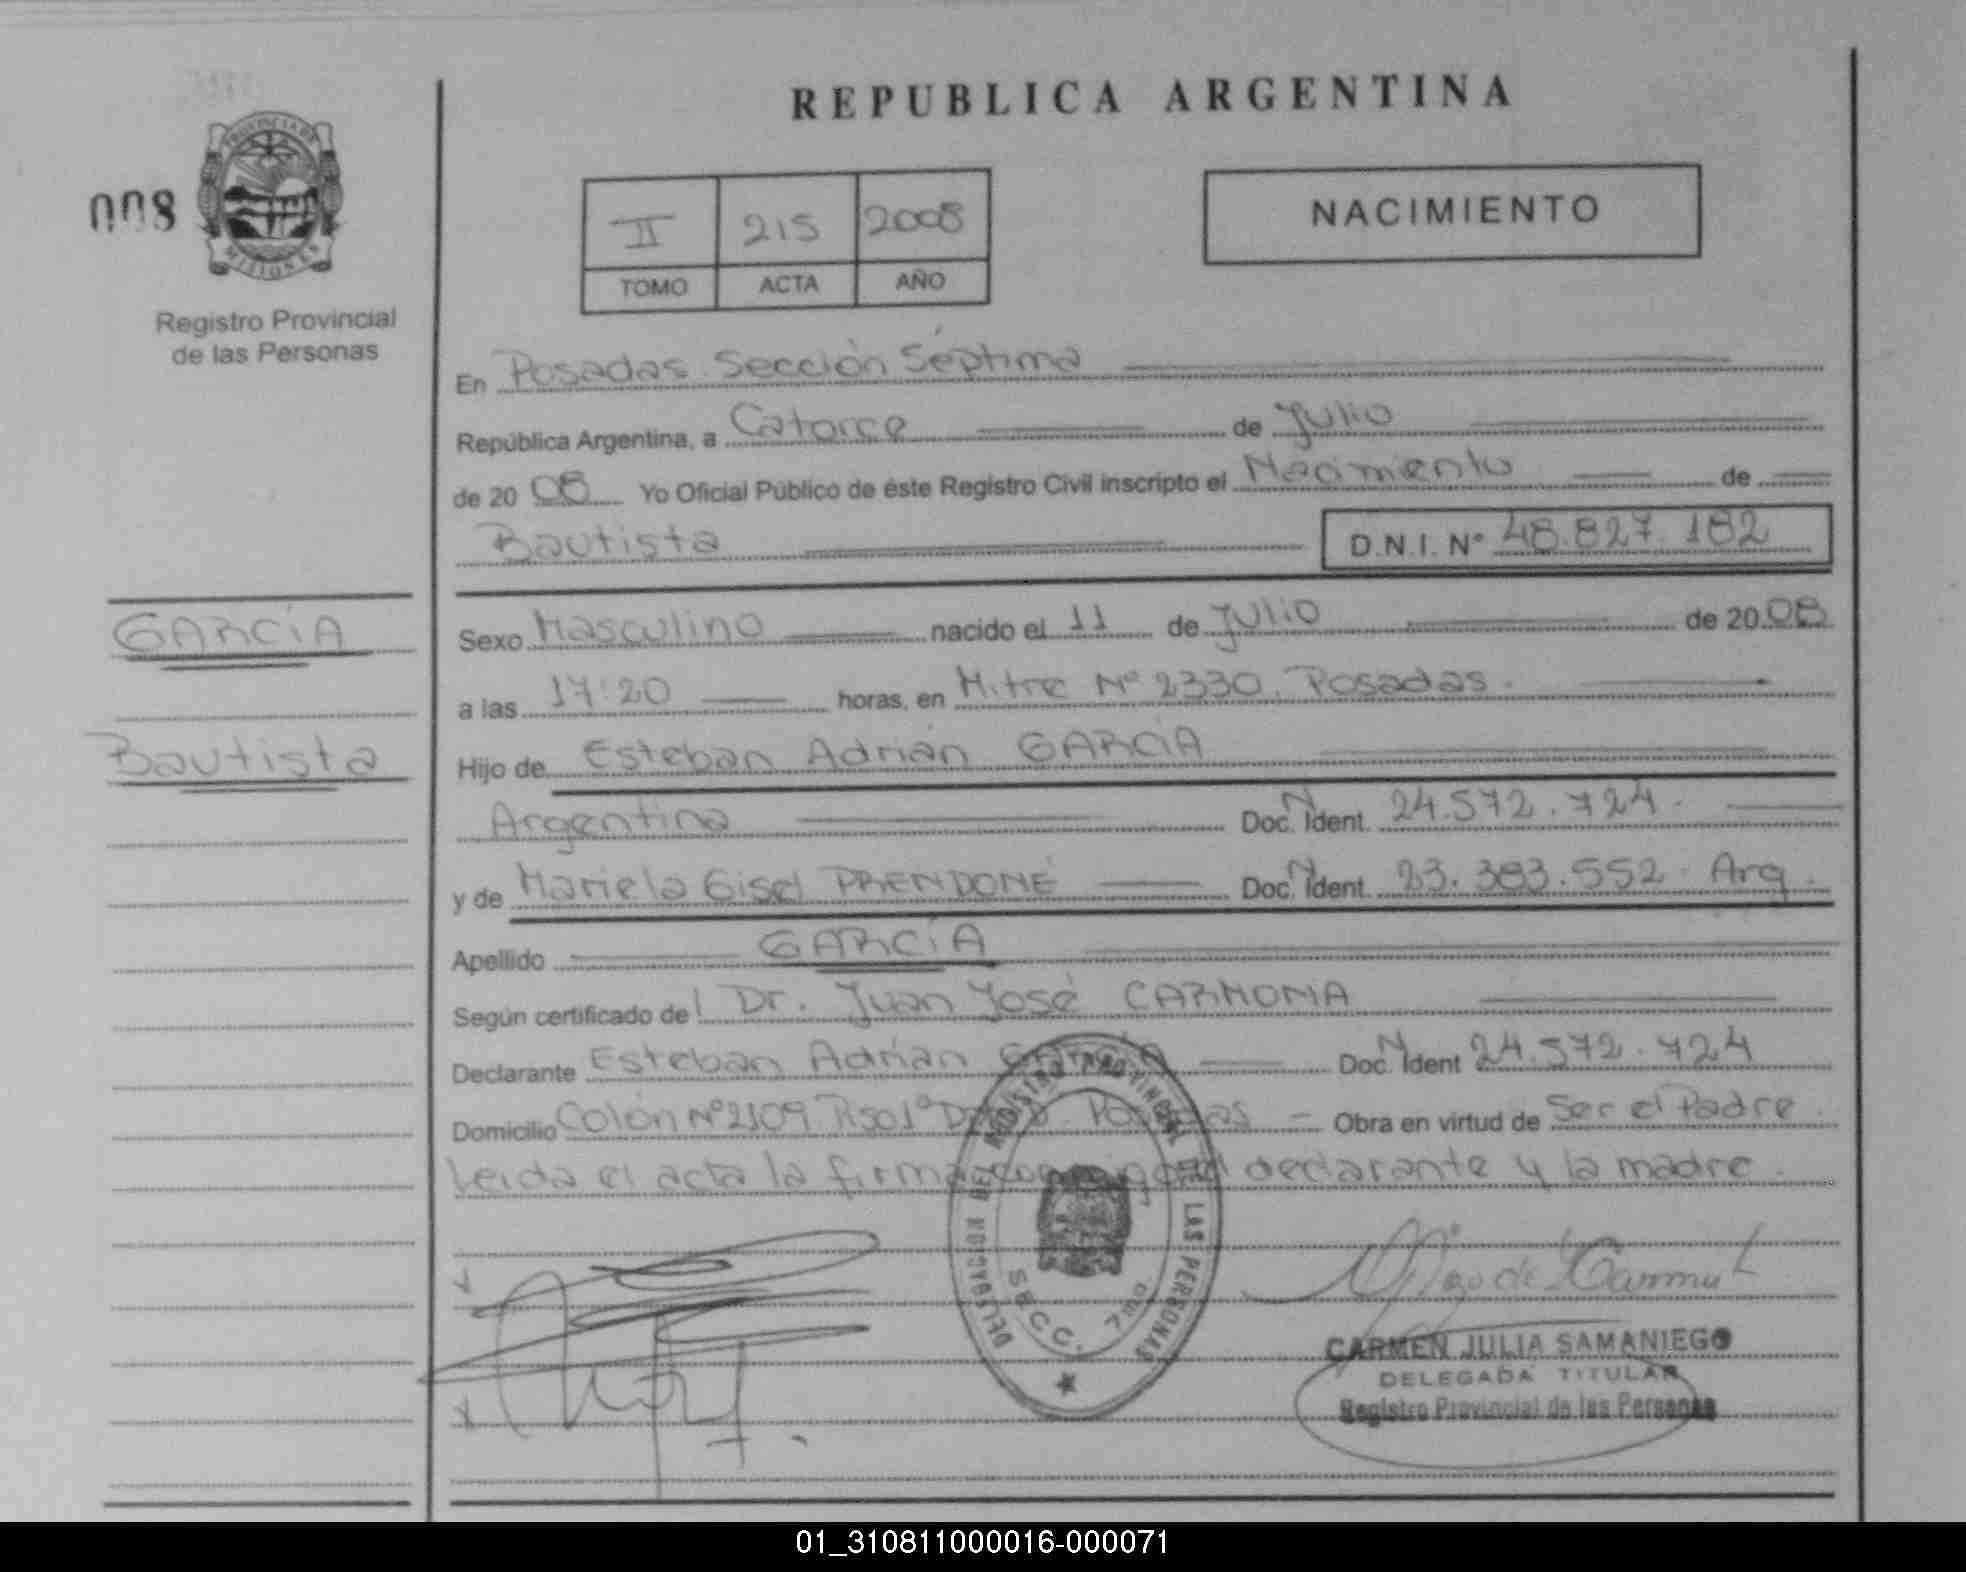 REPUBLICA ARGENTINA
008
PROVINCIA DE
MISIONES
Registro Provincial
de las Personas
II 215 2008
TOMO ACTA AÑO
NACIMIENTO
En Posadas Sección Séptima
República Argentina, a Catorce de Julio
de 20 08 Yo Oficial Público de éste Registro Civil inscripto el Nacimiento de
Bautista D.N.I. N° 48.827.182
GARCÍA
Bautista
Sexo Masculino nacido el 11 de Julio de 20 08
a las 17:20 horas, en Mitre N° 2330. Posadas.
Hijo de Esteban Adrián GARCÍA
Argentina Doc. N Ident. 24.572.724.
y de Mariela Gisel PRENDONÉ Doc. N Ident. 23.383.552. Arg.
Apellido GARCÍA
Según certificado del Dr. Juan José CARMONA
Declarante Esteban Adrián GARCÍA Doc. N Ident 24.572.724
Domicilio Colón N° 2109 Piso 1° Posadas Obra en virtud de Ser el Padre.
Leída el acta la firman conmigo el declarante y la madre.
DELEGACION DEL REGISTRO PROVINCIAL DE LAS PERSONAS
SECC. 7ma.
CARMEN JULIA SAMANIEGO
DELEGADA TITULAR
Registro Provincial de las Personas
01_310811000016-000071